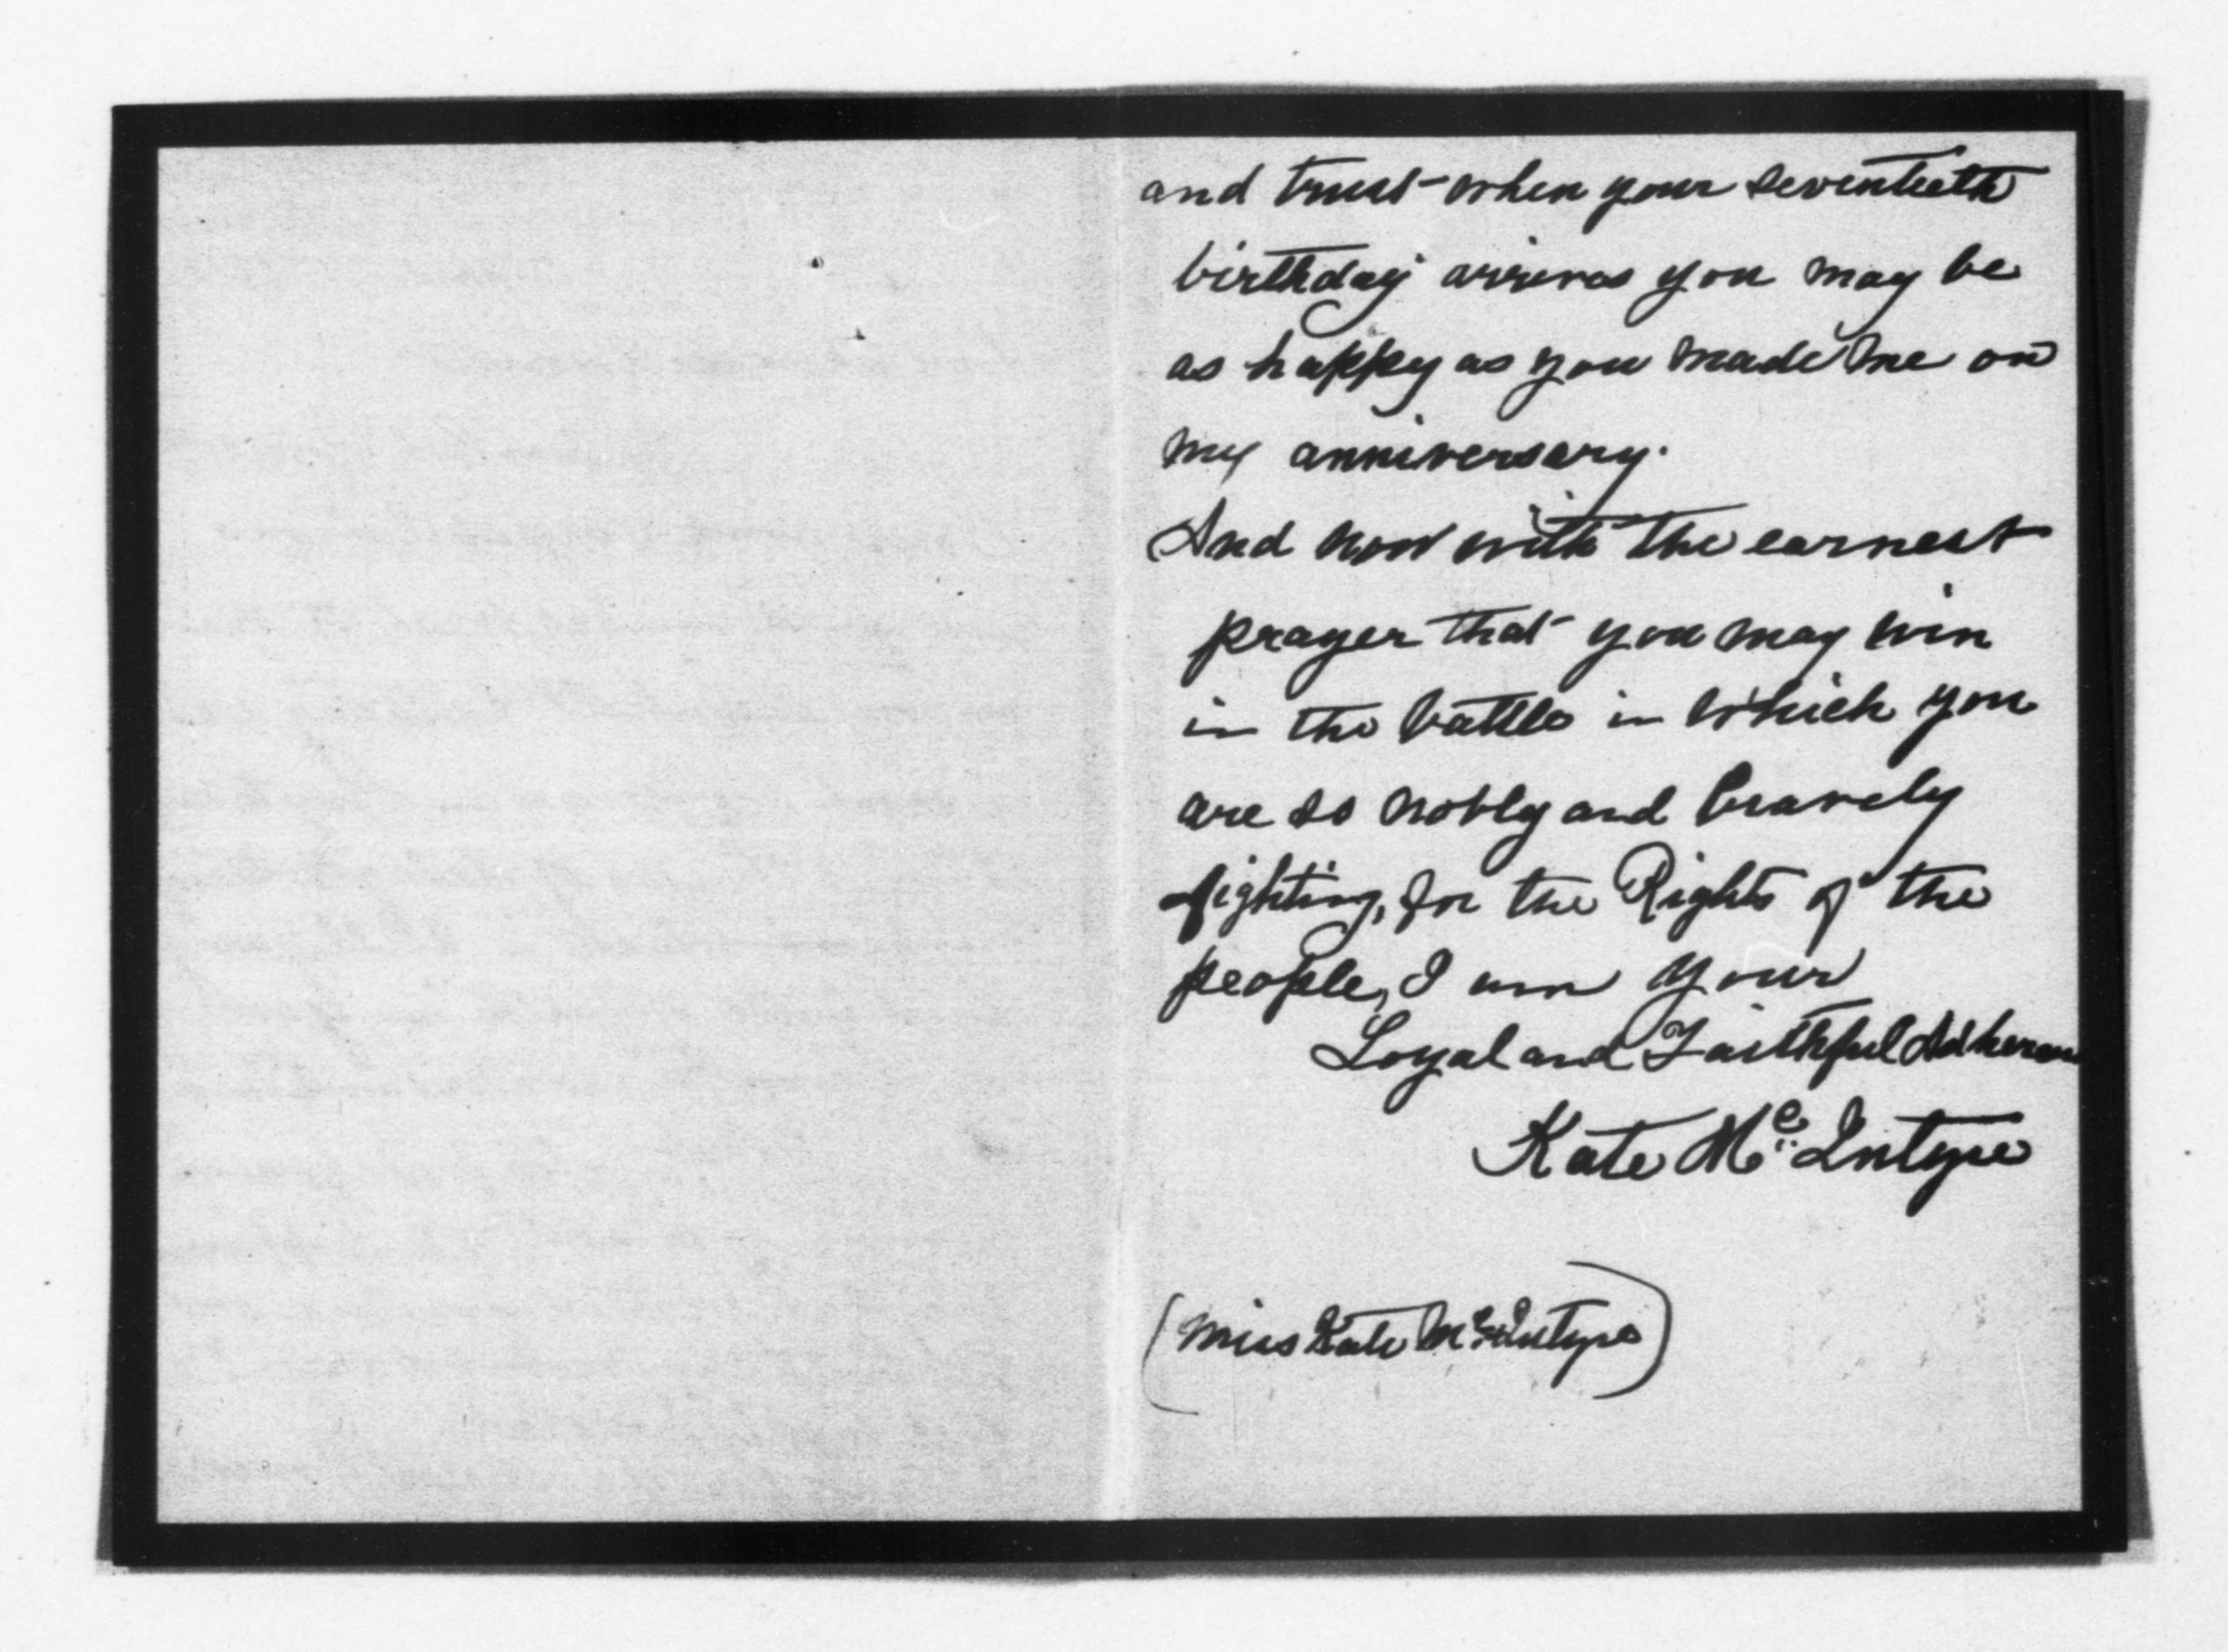 and trust when your seventieth
birthday arrives you may be
as happy as you made me on
my anniversary.
And now with the earnest
prayer that you may win
in the battle in which you
are so nobly and bravely
fighting, for the Rights of the
people, I am your
Loyal and Faithful Adheren
Kate Mc Intyre
(Miss Kate McIntyre)